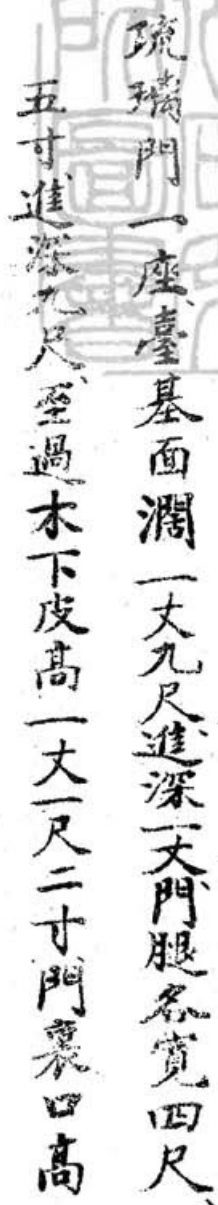 琉璃門一座臺基面濶一丈九尺進深一丈門腿各寬四尺
五寸進深九尺至過木下皮高一丈一尺二寸門裏口高